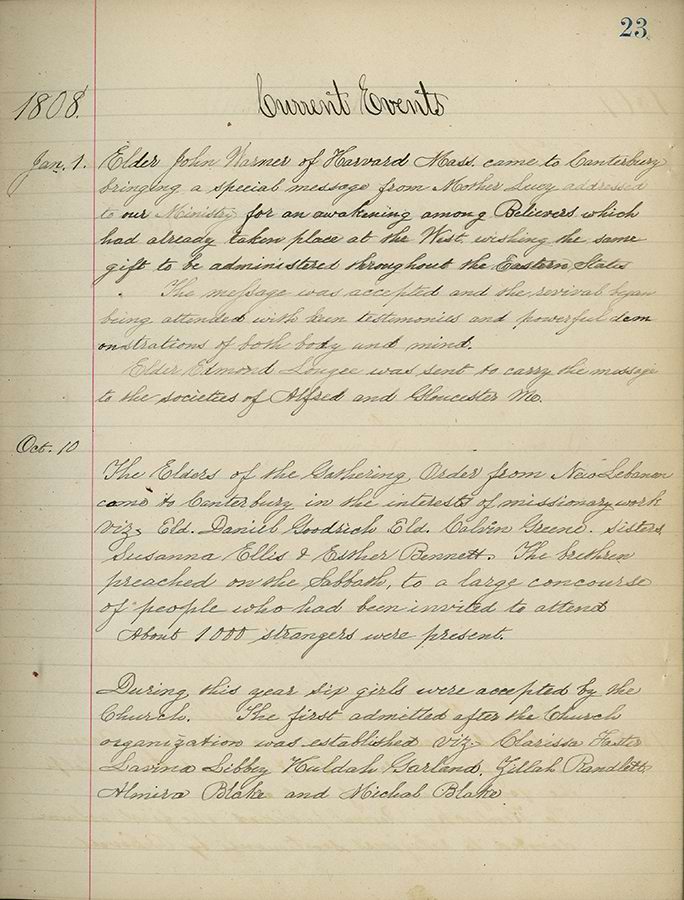 23
Current Events
1808.
Jan. 1. Elder John Warner of Harvard Mass. came to Canterbury
bringing a special message from Mother Lucy addressed
to our Ministry for an awakening among Believers which
had already taken place at the West, wishing the same
gift to be administered throughout the Eastern States
The message was accepted and the revival began
being attended with keen testimonies and powerful dem
onstrations of both body and mind.
Elder Edmond Lougee was sent to carry the message
to the societies of Alfred and Gloucester Me.
Oct. 10
The Elders of the Gathering Order from New Lebanon
came to Canterbury in the interests of missionary work
viz, Eld. Daniel Goodrich Eld. Calvin Greene. Sisters,
Susanna Ellis & Esther Bennett. The brethren
preached on the Sabbath, to a large concourse
of people who had been invited to attend
About 1000 strangers were present.
During this year six girls were accepted by the
Church. The first admitted after the Church
organization was established viz. Clarissa
Lavina Libbey Huldah Garland, Zillah Randlett,
Almira Blake and Michal Blake